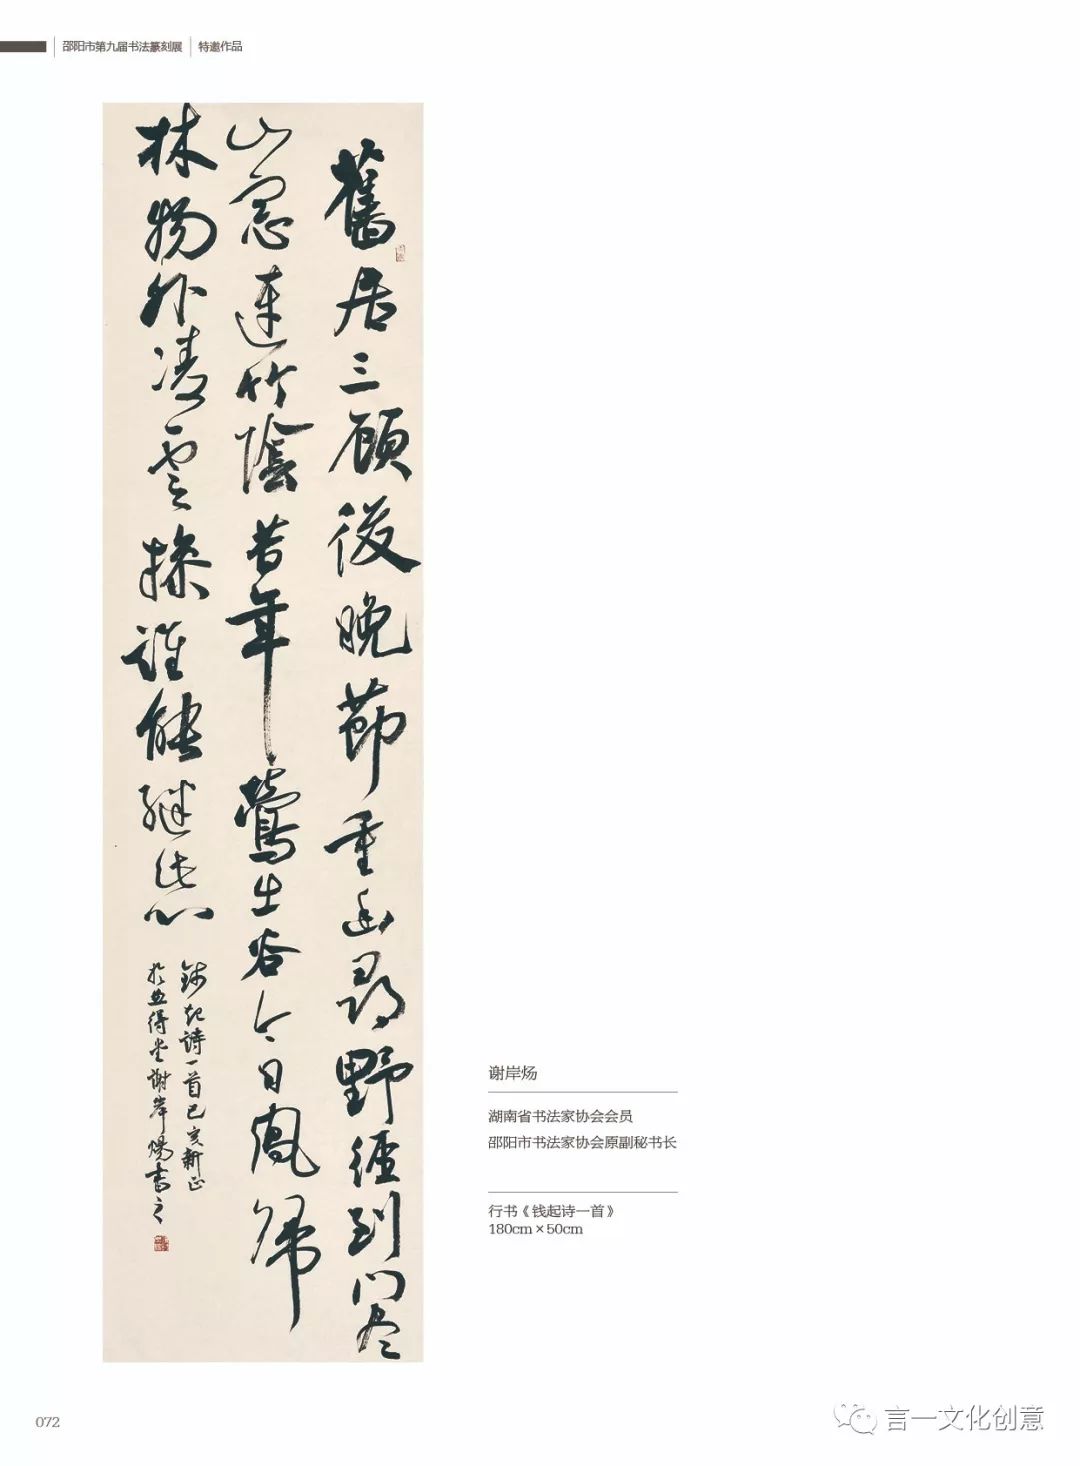 邵阳市第九届书法篆刻展 特邀作品
舊居三顧後晚節重幽尋野徑到門尽
山窓連竹陰昔年鶯出谷今日鳳歸
林物外凌雲操誰能繼此心
錢起詩一首己亥新正
於得堂謝岸煬書之
谢岸炀
湖南省书法家协会会员
邵阳市书法家协会原副秘书长
行书《钱起诗一首》
180cm×50cm
072
言一文化创意